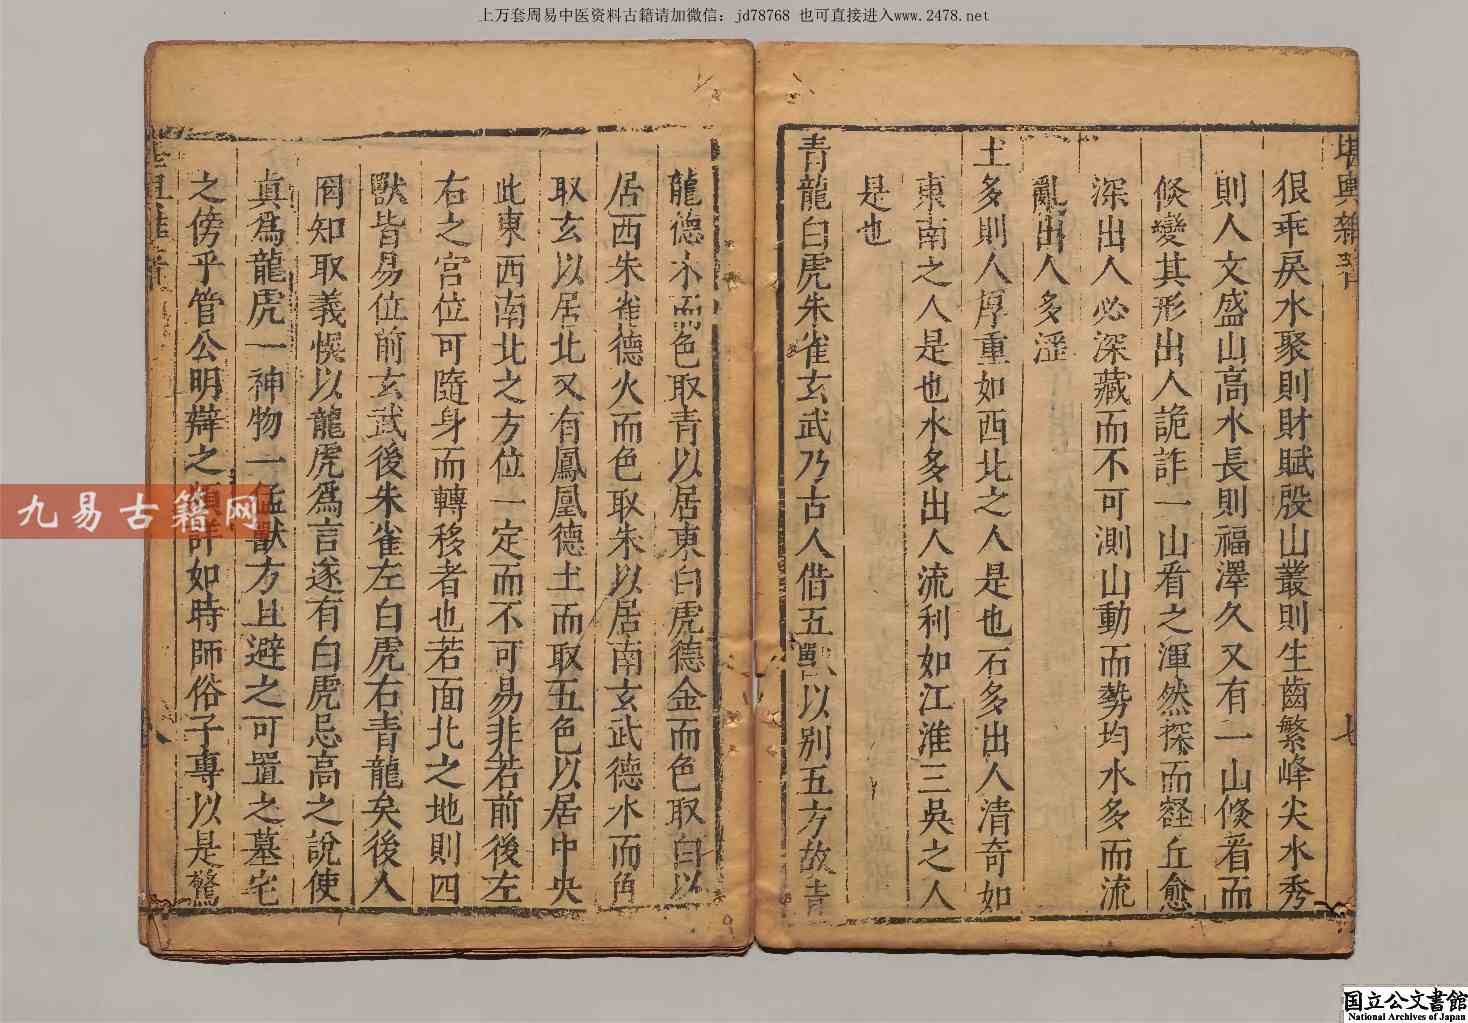 上万套周易中医资料古籍请加微信：jd78768 也可直接进入www.2478.net
堪輿雜著
七
狠乖戾水聚則財賦殷山叢則生齒繁峰尖水秀
則人文盛山高水長則福澤久又有一山倏看而
倏變其形出人詭詐一山看之渾然探而壑丘愈
深出人必深藏而不可測山動而勢均水多而流
亂出人多淫
土多則人厚重如西北之人是也石多出人清奇如
東南之人是也水多出人流利如江淮三吳之人
是也
青龍白虎朱雀玄武乃古人借五獸以別五方故青
龍德木而色取青以居東白虎德金而色取白以
居西朱雀德火而色取朱以居南玄武德水而色
取玄以居北又有鳳凰德土而取五色以居中央
此東西南北之方位一定而不可易非若前後左
右之宮位可隨身而轉移者也若面北之地則四
獸皆易位前玄武後朱雀左白虎右青龍矣後人
罔知取義悞以龍虎為言遂有白虎忌高之說使
真爲龍虎一神物一猛獸方且避之可置之墓宅
之傍乎管公明辯之頗詳如時師俗子專以是驚
八
九易古籍网
国立公文書館
National Archives of Japan